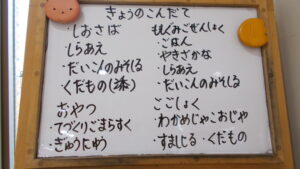 きょうのこんだて
・しおさば
・しらあえ
・だいこんのみそしる
くだもの
おやつ
・てづくりごまらすく
ぎゅうにゅう
ももぐみごぜんしょく
・ごはん
・やきざかな
・しらあえ
・だいこんのみそしる
ここしょく
・わかめじゃこおじや
・すましじる・くだもの